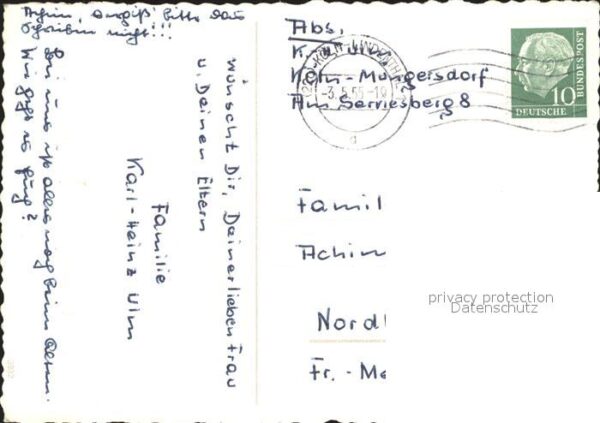 Achim, vergiß' bitte das
Schreiben nicht!!!
Bei uns ist alles noch beim Alten.
Wie geht es Jürg?
wünscht Dir, Deiner lieben Frau
u. Deinen Eltern
Familie
Karl-Heinz Ulm
Abs.
K. Ulm
Köln-Müngersdorf
Am Serviesberg 8
KÖLN-LINDENTHAL
-3.5.55-19
d
10
DEUTSCHE
BUNDESPOST
Famil
Achim
Nord
Fr.-Me
privacy protection
Datenschutz